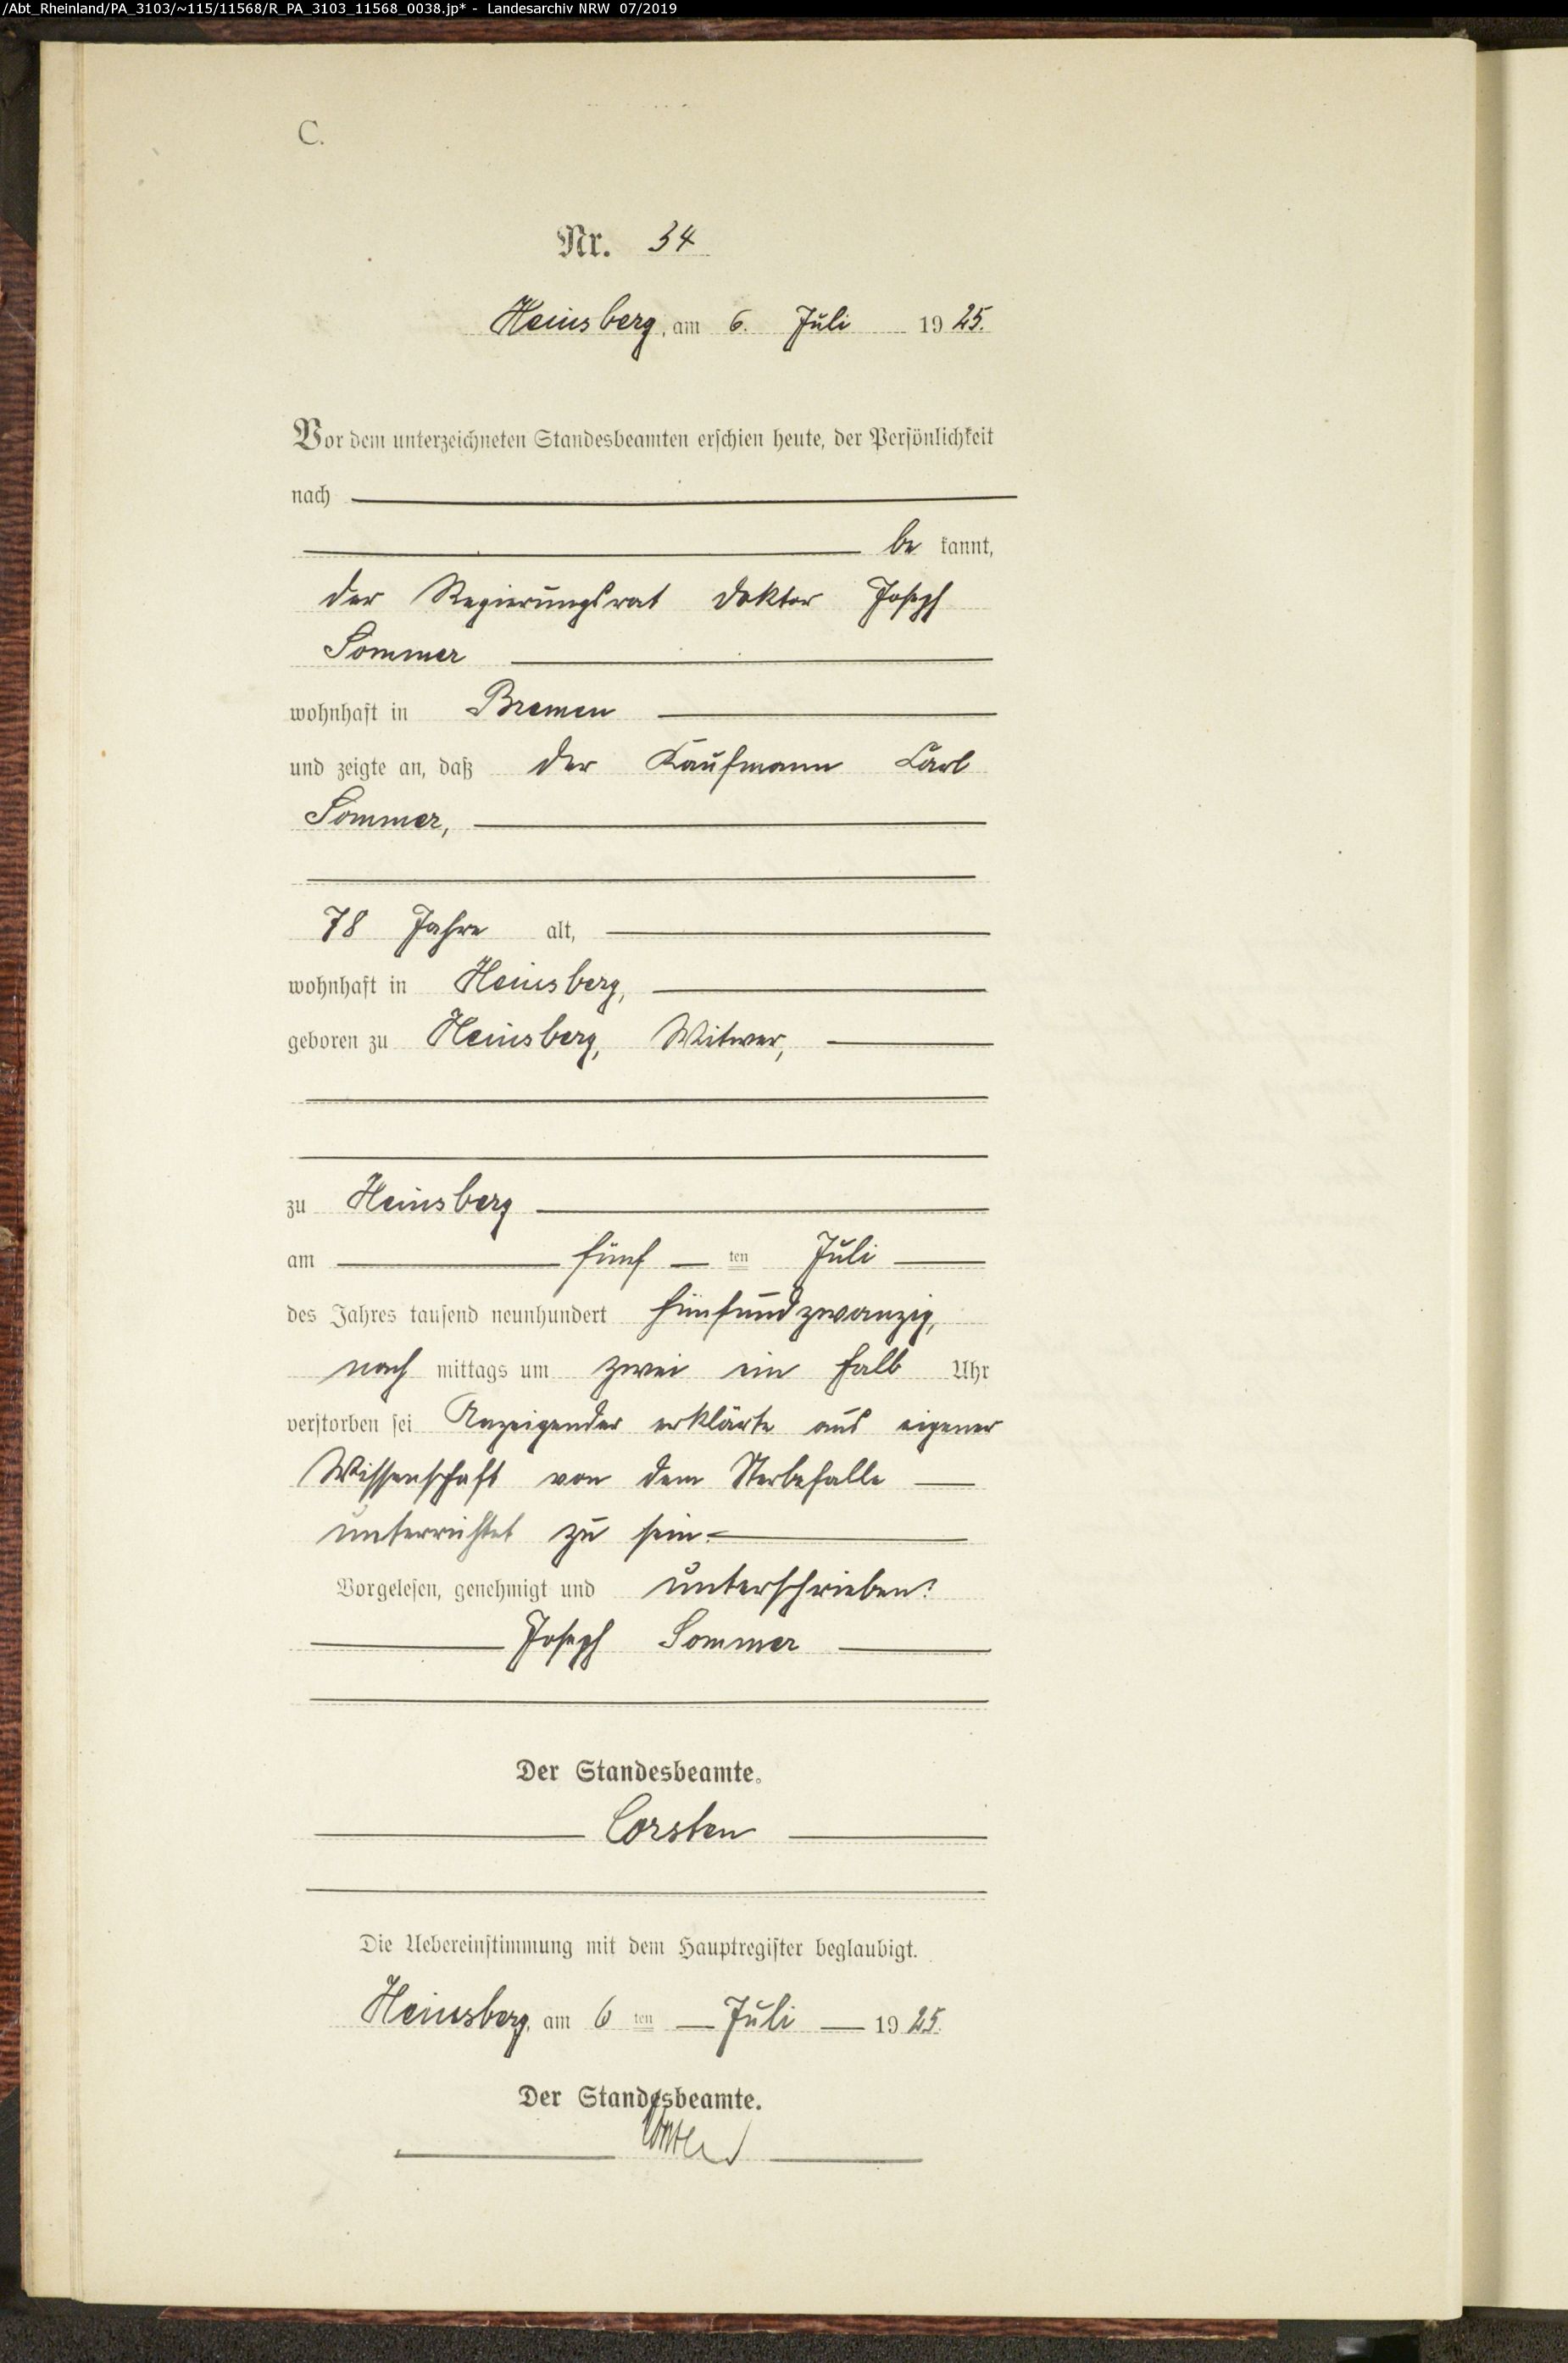 /Abt_Rheinland/PA_3103/~115/11568/R_PA_3103_11568_0038.jp* - Landesarchiv NRW 07/2019
C.
Nr. 34
Heinsberg, am 6. Juli 1925.
Vor dem unterzeichneten Standesbeamten erschien heute, der Persönlichkeit
nach
be kannt,
der Regierungsrat Doktor Joseph
Sommer
wohnhaft in Bremen
und zeigte an, daß der Kaufmann Carl
Sommer,
78 Jahre alt,
wohnhaft in Heinsberg,
geboren zu Heinsberg, Witwer,
zu Heinsberg
am fünf ten Juli
des Jahres tausend neunhundert fünfundzwanzig,
nach mittags um zwei ein halb Uhr
verstorben sei Anzeigender erklärte aus eigener
Wissenschaft von dem Sterbefalle
unterrichtet zu sein.
Vorgelesen, genehmigt und unterschrieben:
Joseph Sommer
Der Standesbeamte.
Corsten
Die Uebereinstimmung mit dem Hauptregister beglaubigt.
Heinsberg, am 6 ten Juli 1925.
Der Standesbeamte.